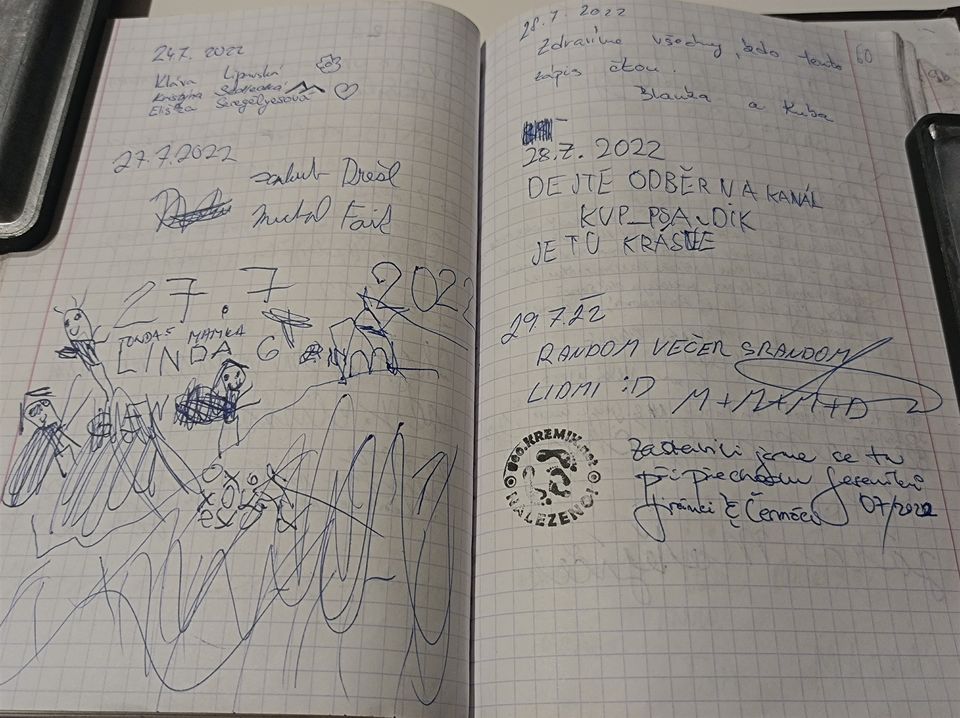 24.7. 2022
Klára
Kristýna
Eliška
27.7.2022
Jakub Drešl
Michal
27.7 2022
TONDA Š MAMKA
LINDA G
28.7. 2022 60
Zdravíme všechny, kdo tento
zápis čtou.
Blanka a Kuba
28.7. 2022
DEJTE ODBĚR NA KANÁL
KVP_PSA_DIK
JE TU KRÁSNE
29.7.22
RANDOM VEČER S RANDOM
LIDMI :D M+M+M+D
KREMIK.net
NALEZENO!
Zastavili jsme se tu
při přechodu Jeseníků
07/2022